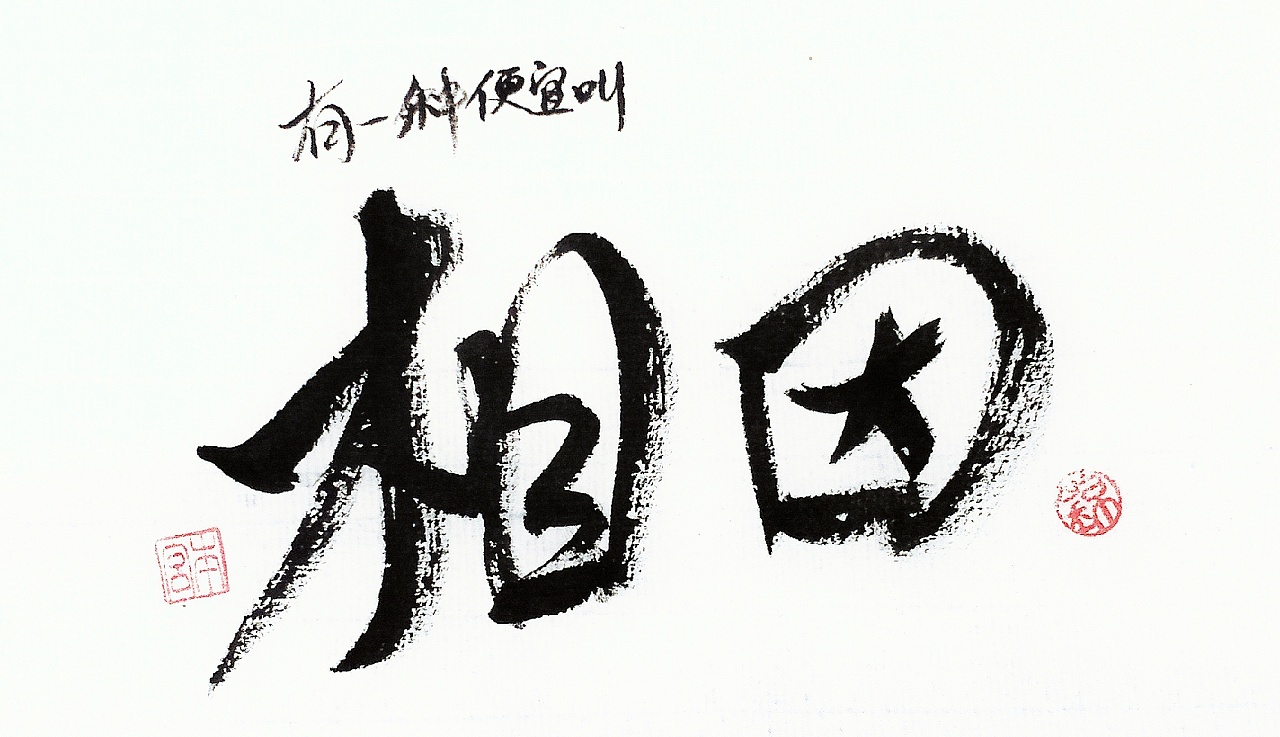 有一种便宜叫
相因